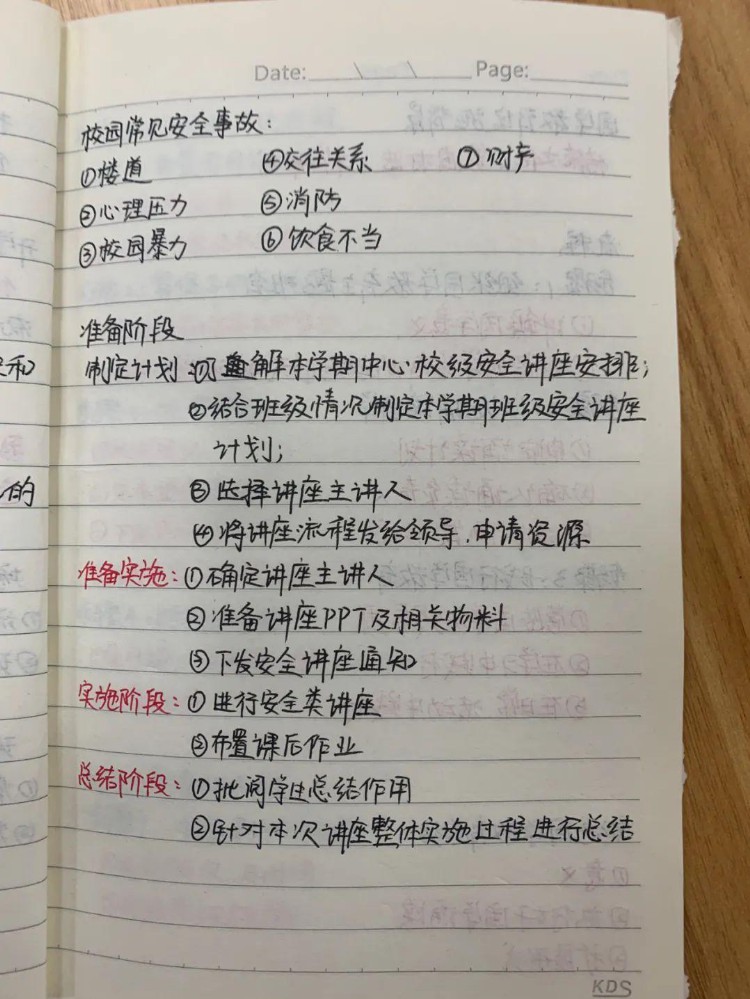 Date: / / Page:
校园常见安全事故:
①楼道 ④交往关系 ⑦财产
②心理压力 ⑤消防
③校园暴力 ⑥饮食不当
准备阶段
制定计划:① 解本学期中心校级安全讲座安排;
②结合班级情况制定本学期班级安全讲座
计划;
③选择讲座主讲人
④将讲座流程发给领导.申请资源
准备实施:①确定讲座主讲人
②准备讲座PPT及相关物料
③下发安全讲座通知
实施阶段:①进行安全类讲座
②布置课后作业
总结阶段:①批阅学生总结作用
②针对本次讲座整体实施过程进行总结
和
的
KDS